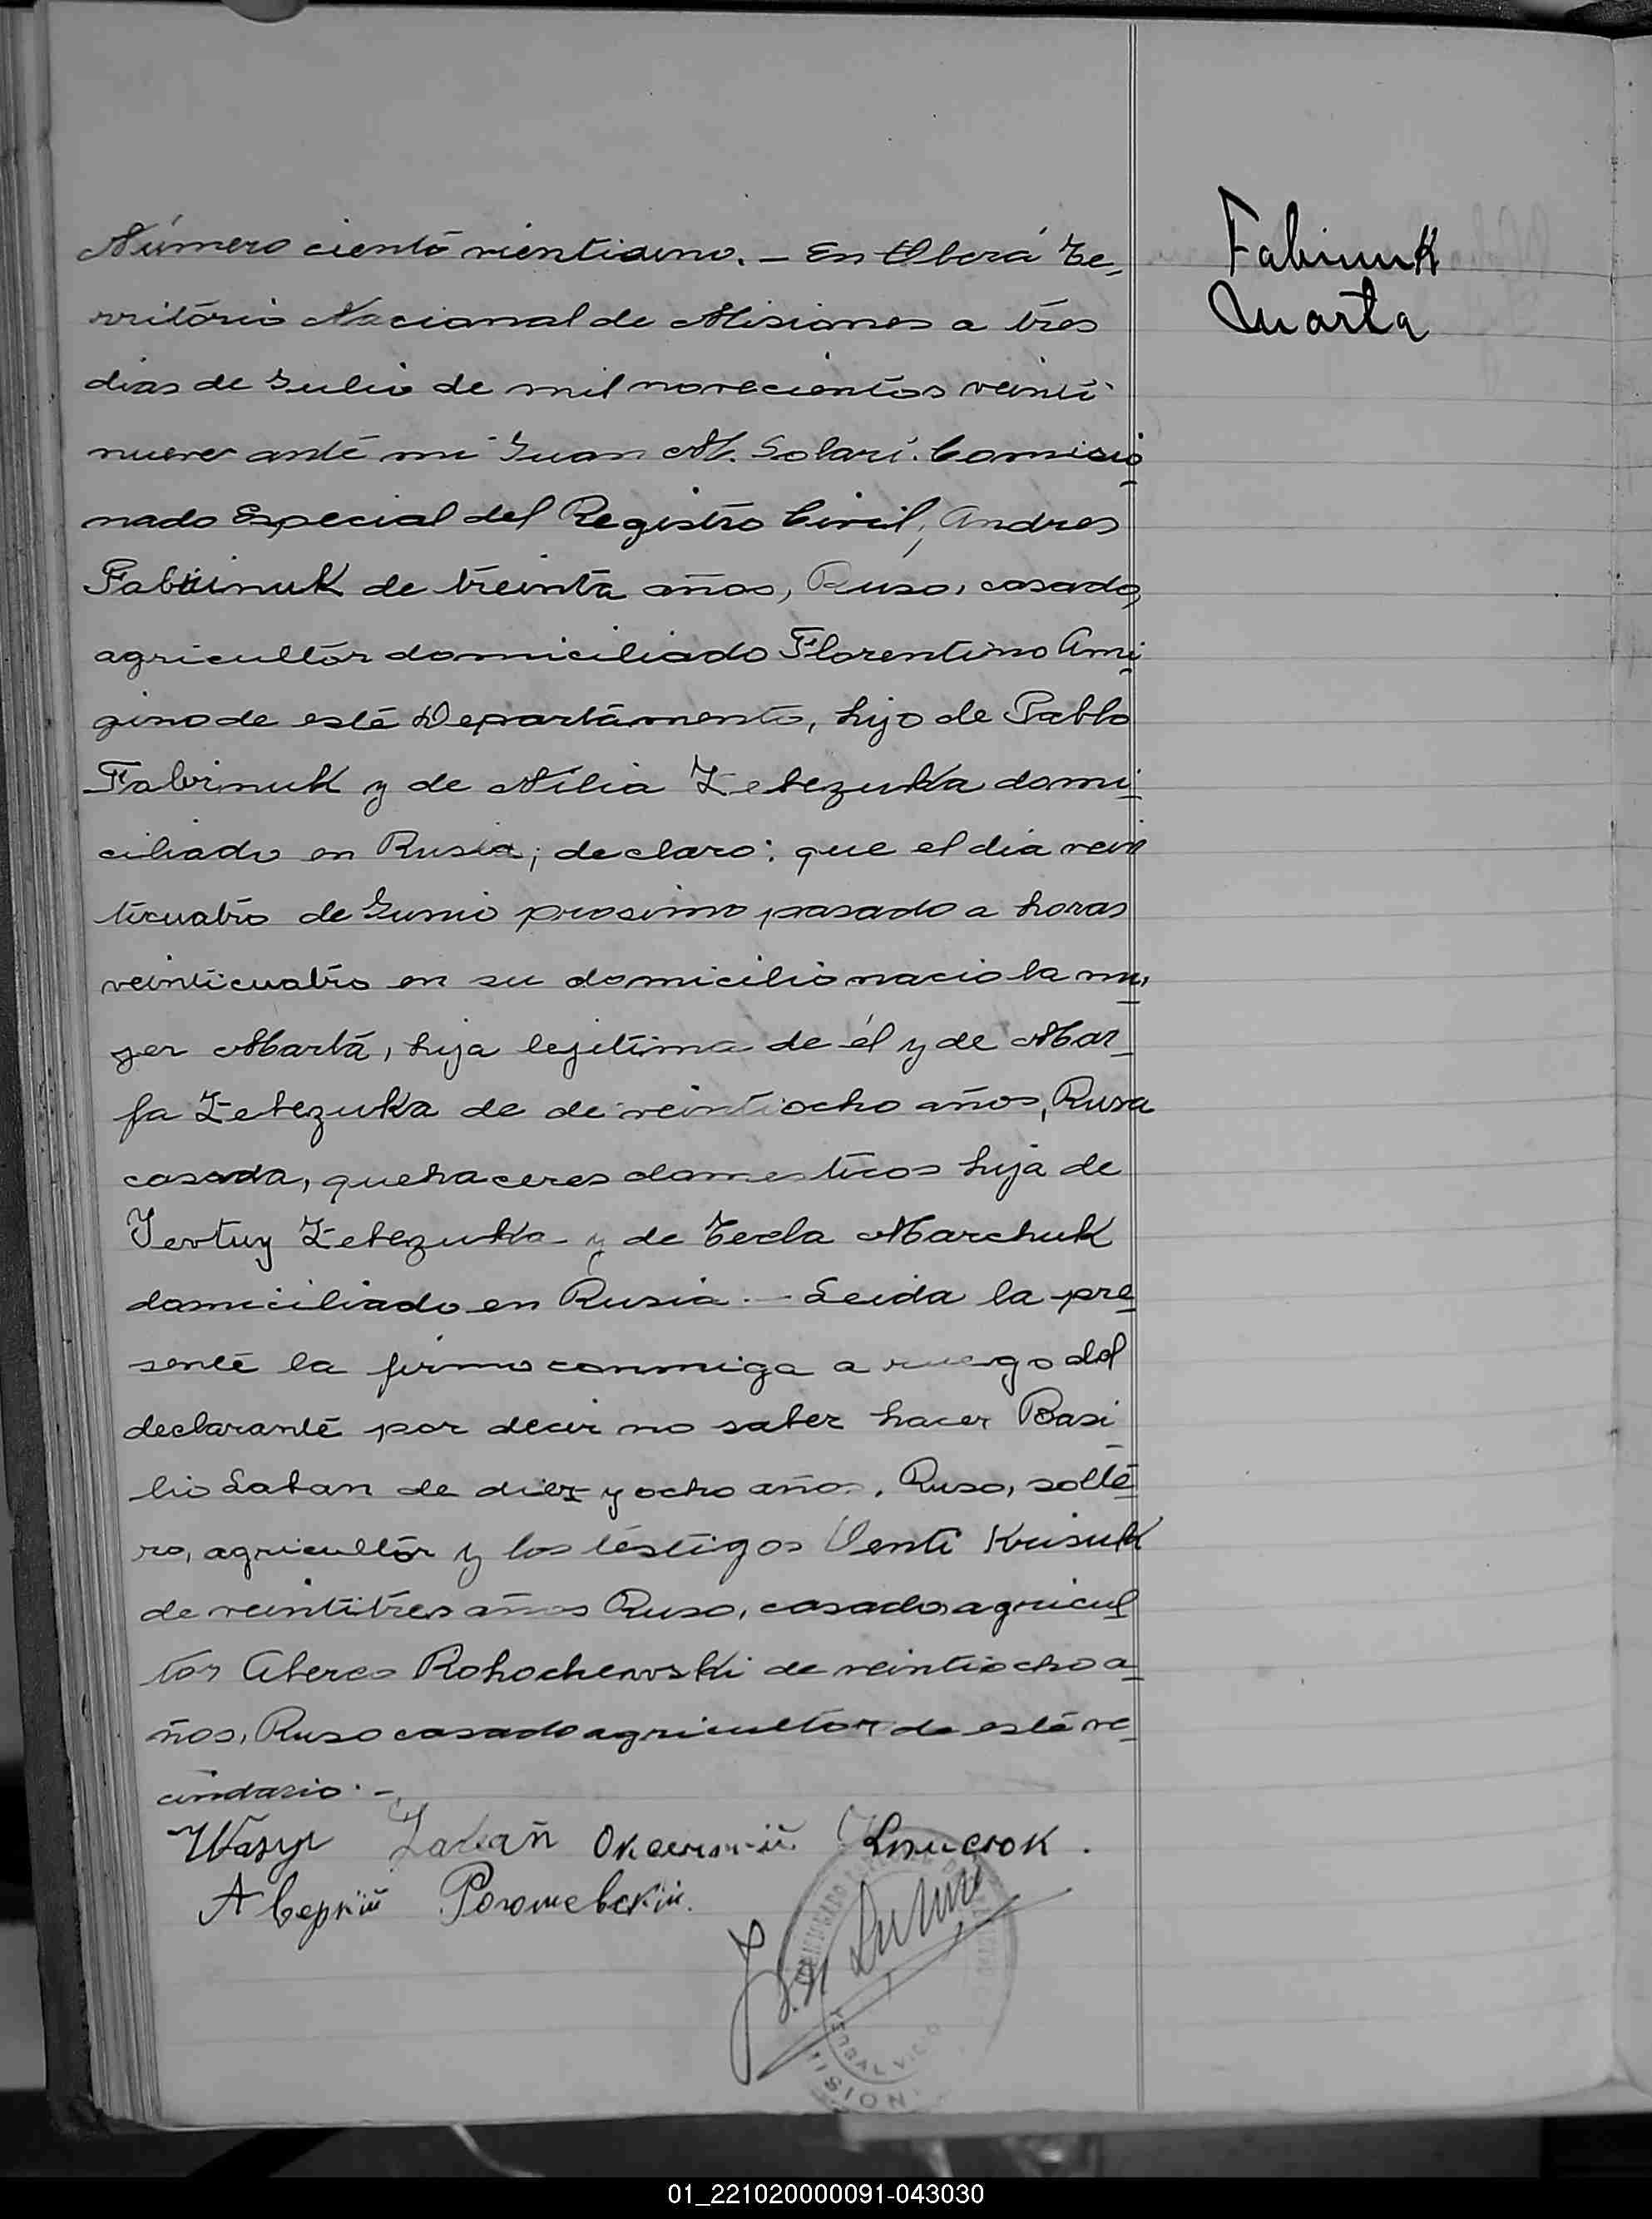 Número ciento vientiuno. - En Oberá Te,
rritório Nacional de Misiones a tres
dias de Julio de mil novecientos veinti
nueve ante mi Juan M. Solari. Comisio
nado Especial del Registro Civil, Andres
Fabiinuk de treinta años, Ruso, casado,
agricultor domiciliado Florentino Ami
gino de este Departamento, hijo de Pablo
Fabrinuk y de Nilia Zebezuka domi
ciliado en Rusia; declaro: que el dia vein
ticuatro de Junio prosimo pasado a horas
veinticuatro en su domicilio nacio la mu,
ger Marta, hija lejitima de él y de Mar_
fa Zebezuka de de veintiocho años, Rusa
casada, quehaceres domesticos hija de
Jevtuy Zebezuka y de Tecla Marchuk
domiciliado en Rusia. - Leida la pre
sente la firmo conmigo a ruego del
declarante por decir no saber hacer Basi
lio Laban de diez y ocho años, Ruso, solte
ro, agricultor y los testigos Venti Krisuk
de veintitres años Ruso, casado, agricul
tor Aberco Rohochewski de veintiocho a
ños, Ruso casado agricultor de este ve
cindario. -
Wasyl
Аверкій Рогошевскій.
Fabinuk
Marta
01_221020000091-043030